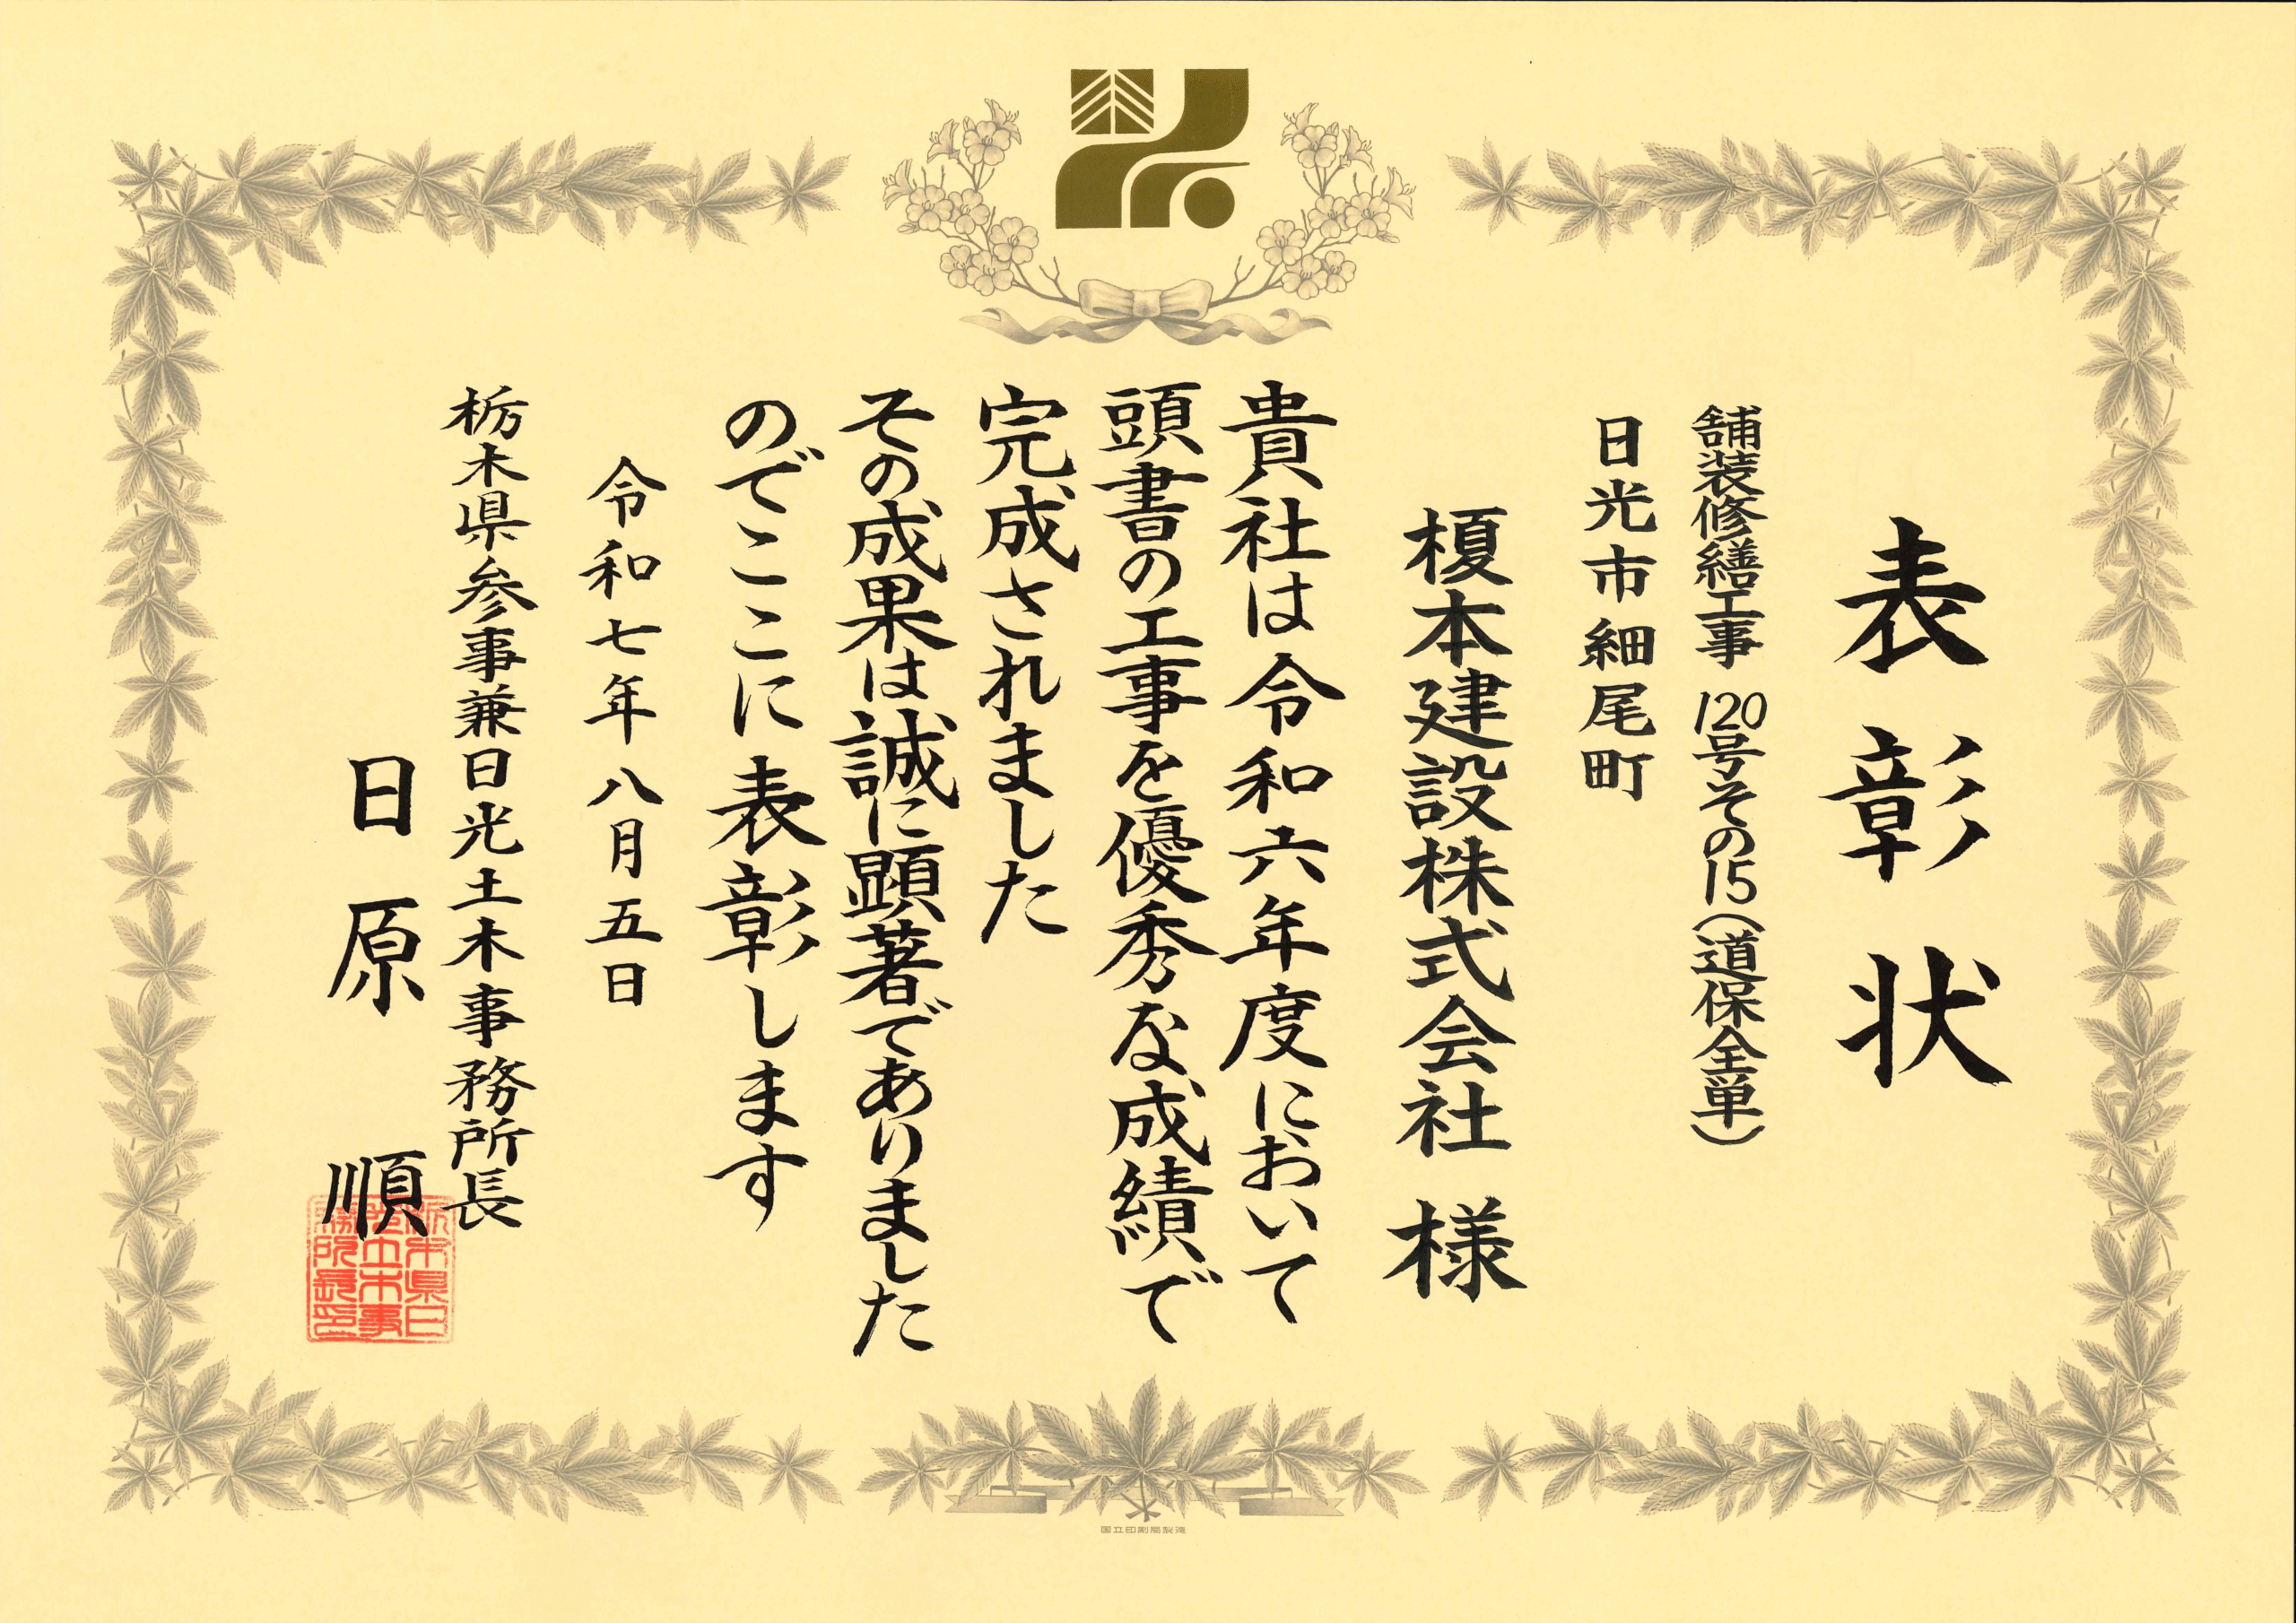 表彰状
舗装修繕工事 120号その15(道保全単)
日光市細尾町
榎本建設株式会社 様
貴社は令和六年度において
頭書の工事を優秀な成績で
完成されました
その成果は誠に顕著でありました
のでここに表彰します
令和七年八月五日
栃木県参事兼日光土木事務所長
日原 順
栃木県日
光土木事
務所長印
国立印刷局製造